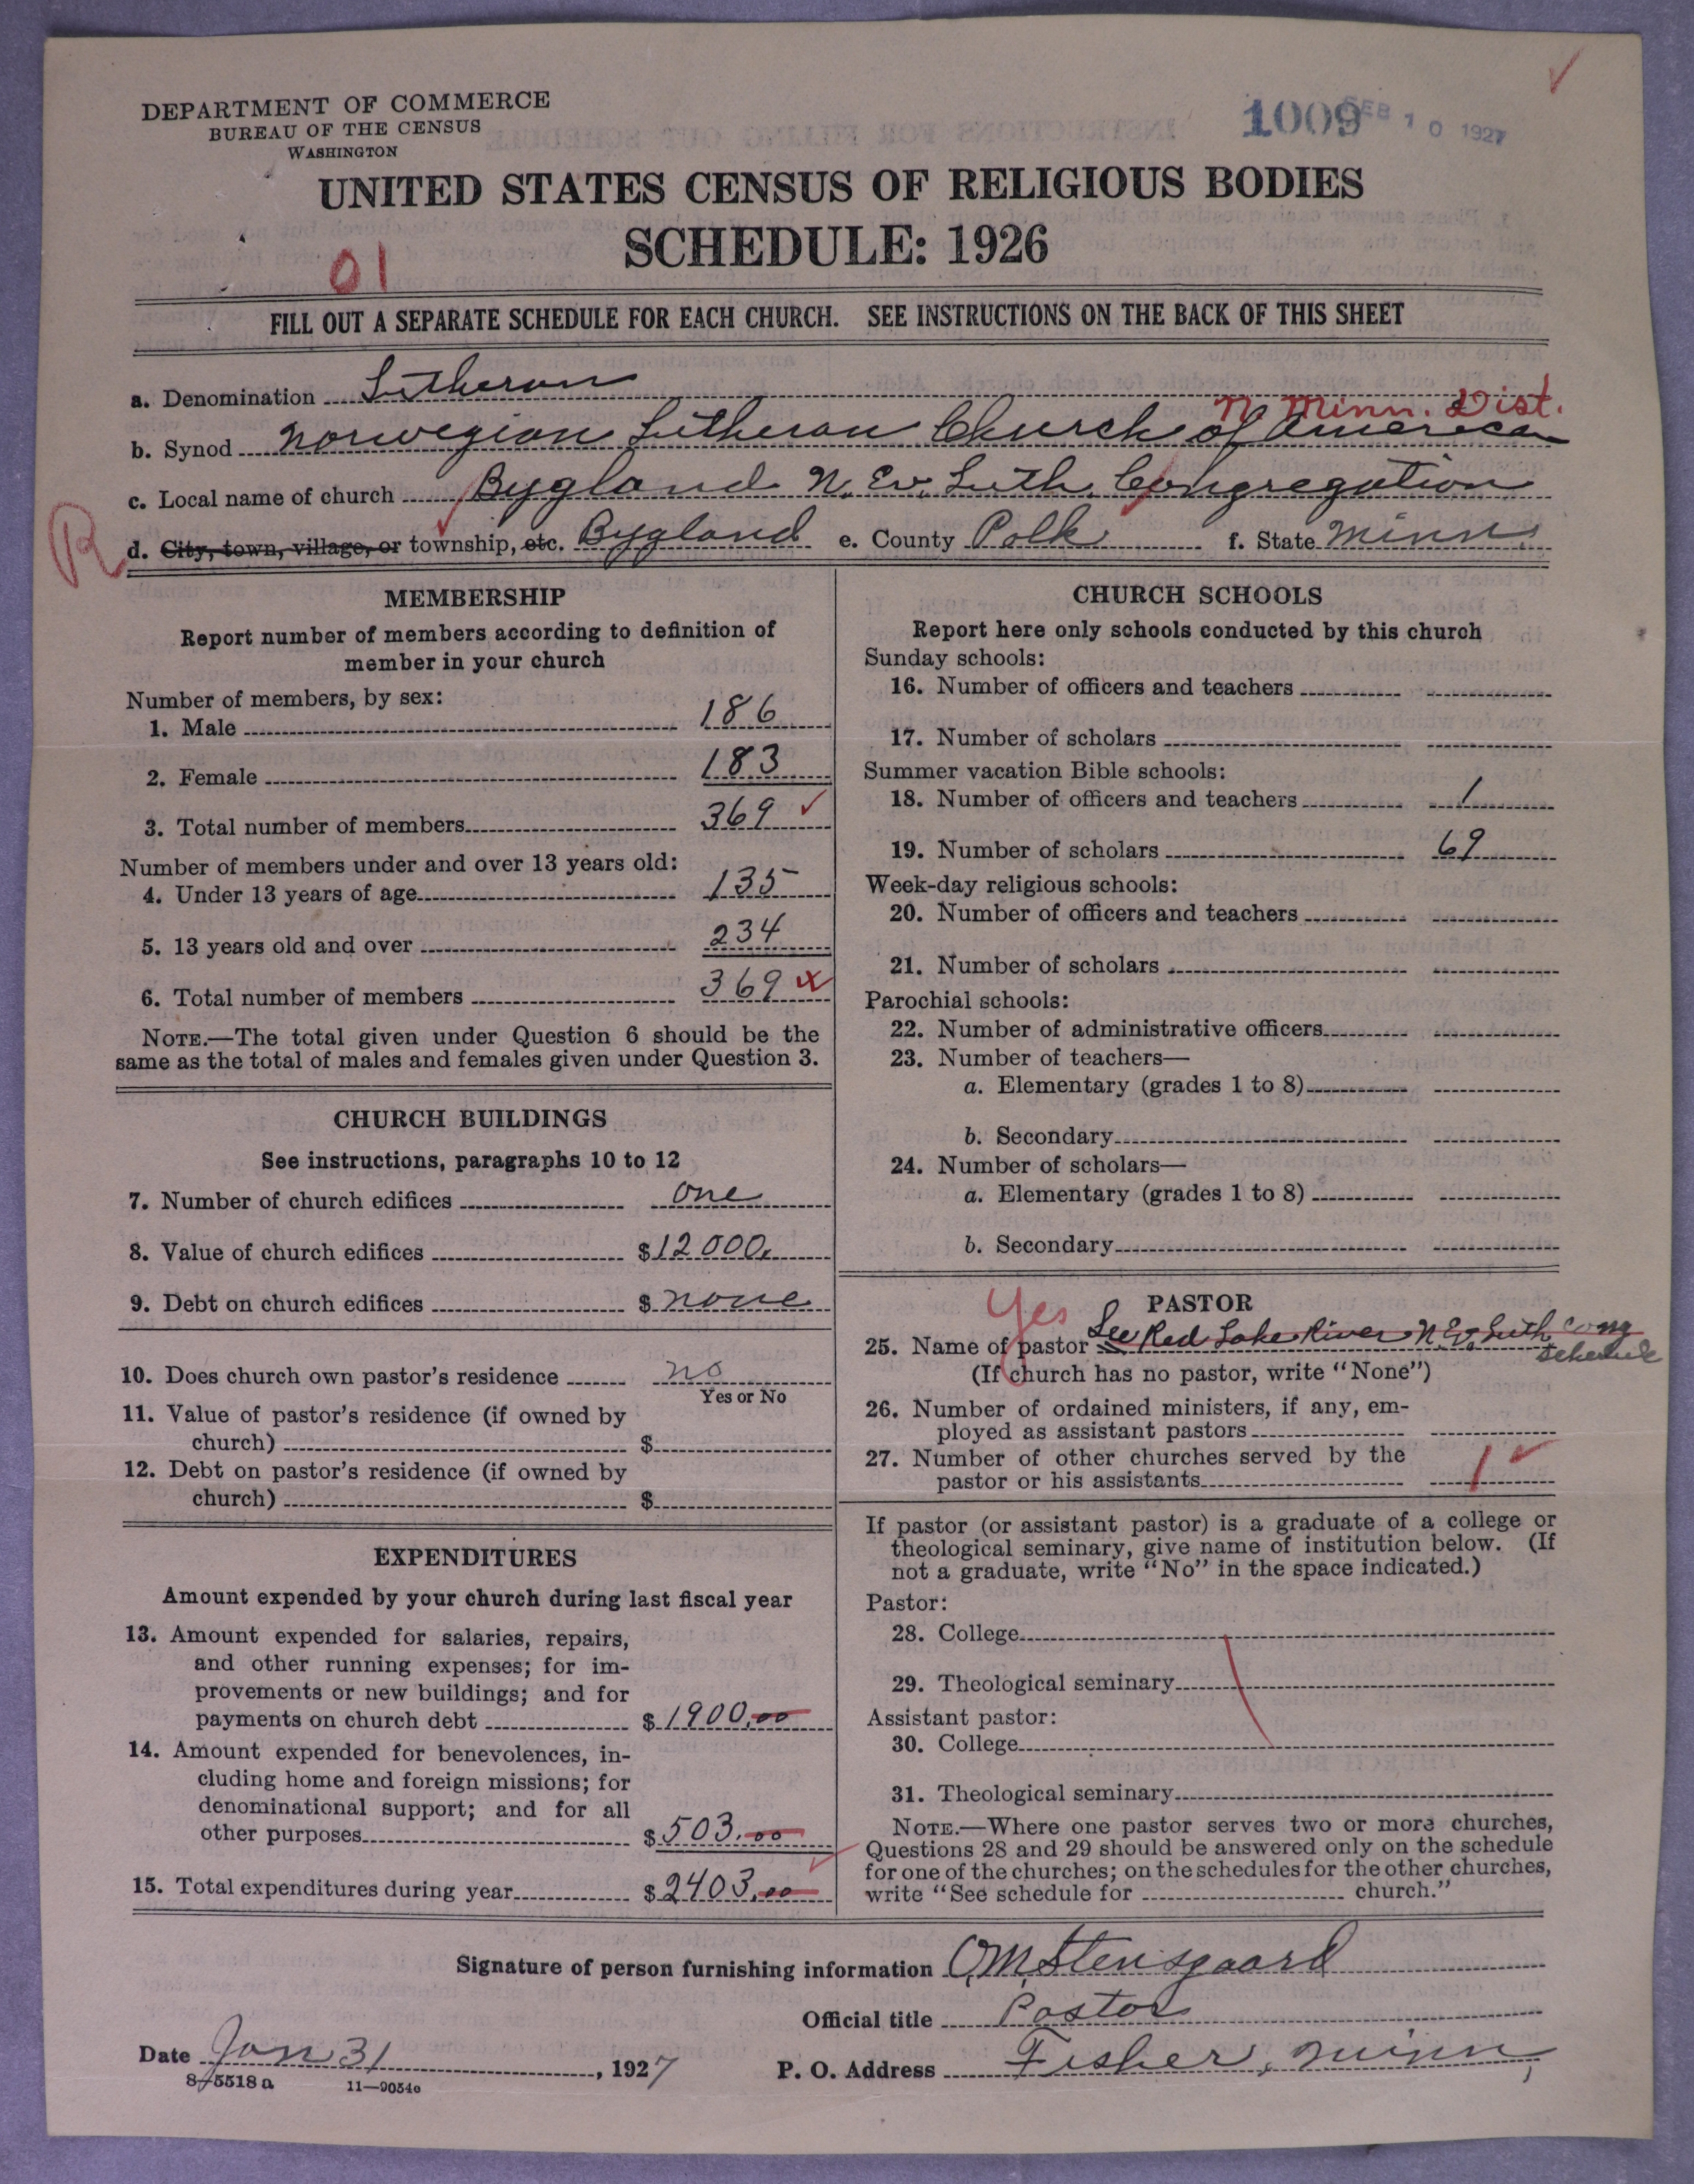 DEPARTMENT OF COMMERCE
BUREAU OF THE CENSUS
WASHINGTON
1009 FEB 10 1927
UNITED STATES CENSUS OF RELIGIOUS BODIES
SCHEDULE: 1926
01
FILL OUT A SEPARATE SCHEDULE FOR EACH CHURCH. SEE INSTRUCTIONS ON THE BACK OF THIS SHEET
a. Denomination Lutheran
N. Minn. Dist.
b. Synod Norwegian Lutheran Church of America
c. Local name of church Bygland N. Ev. Luth. Congregation
R d. City, town, village, or township, etc. Bygland e. County Polk f. State Minn.
MEMBERSHIP
Report number of members according to definition of
member in your church
Number of members, by sex:
1. Male 186
2. Female 183
3. Total number of members 369
Number of members under and over 13 years old:
4. Under 13 years of age 135
5. 13 years old and over 234
6. Total number of members 369
NOTE.—The total given under Question 6 should be the
same as the total of males and females given under Question 3.
CHURCH BUILDINGS
See instructions, paragraphs 10 to 12
7. Number of church edifices one
8. Value of church edifices $12000.
9. Debt on church edifices $ none
10. Does church own pastor's residence no
Yes or No
11. Value of pastor's residence (if owned by
church) $
12. Debt on pastor's residence (if owned by
church) $
EXPENDITURES
Amount expended by your church during last fiscal year
13. Amount expended for salaries, repairs,
and other running expenses; for im-
provements or new buildings; and for
payments on church debt $1900.00
14. Amount expended for benevolences, in-
cluding home and foreign missions; for
denominational support; and for all
other purposes $503.00
15. Total expenditures during year $2403.00
CHURCH SCHOOLS
Report here only schools conducted by this church
Sunday schools:
16. Number of officers and teachers
17. Number of scholars
Summer vacation Bible schools:
18. Number of officers and teachers 1
19. Number of scholars 69
Week-day religious schools:
20. Number of officers and teachers
21. Number of scholars
Parochial schools:
22. Number of administrative officers
23. Number of teachers—
a. Elementary (grades 1 to 8)
b. Secondary
24. Number of scholars—
a. Elementary (grades 1 to 8)
b. Secondary
Yes PASTOR
25. Name of pastor See Red Lake River N. Ev. Luth Cong
schedule
(If church has no pastor, write "None")
26. Number of ordained ministers, if any, em-
ployed as assistant pastors
27. Number of other churches served by the
pastor or his assistants 1
If pastor (or assistant pastor) is a graduate of a college or
theological seminary, give name of institution below. (If
not a graduate, write "No" in the space indicated.)
Pastor:
28. College
29. Theological seminary
Assistant pastor:
30. College
31. Theological seminary
NOTE.—Where one pastor serves two or more churches,
Questions 28 and 29 should be answered only on the schedule
for one of the churches; on the schedules for the other churches,
write "See schedule for church."
Signature of person furnishing information O.M. Stensgaard
Official title Pastor
Date Jan 31, 1927 P. O. Address Fisher, Minn,
8-5518 a 11-9054c